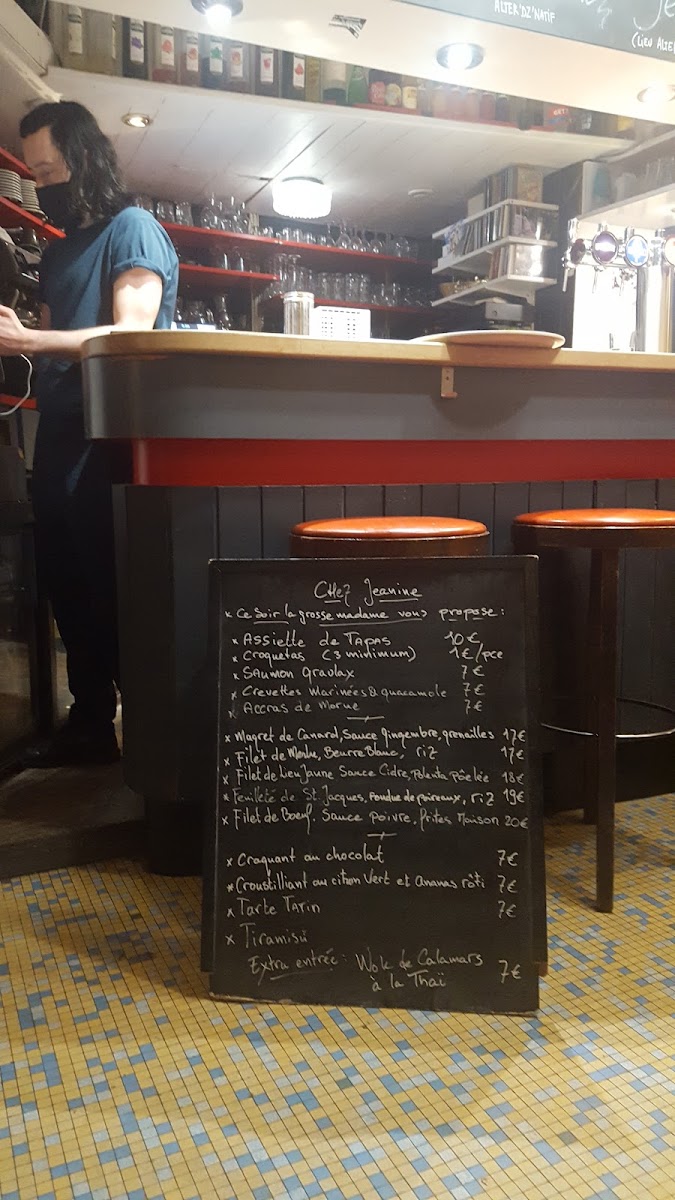 ALTER'DZ'NATIF
(LIEU ALTE
CHEZ Jeanine
x Ce Soir la grosse madame vous propose :
x Assiette de TAPAS 10€
x Croquetas (3 minimum) 1€/pce
x Saumon gravlax 7€
x Crevettes Marinées & guacamole 7€
x Accras de Morue 7€
x Magret de Canard, Sauce gingembre, grenailles 17€
x Filet de Merlu, Beurre Blanc, riz 17€
x Filet de Lieu Jaune Sauce Cidre, Polenta poêlée 18€
x Feuilleté de St. Jacques, fondue de poireaux, riz 19€
x Filet de Boeuf. Sauce poivre, frites Maison 20€
x Croquant au chocolat 7€
x Croustilliant au citron Vert et Ananas rôti 7€
x Tarte Tatin 7€
x Tiramisu
Extra entrée : Wok de Calamars 7€
à la Thaï